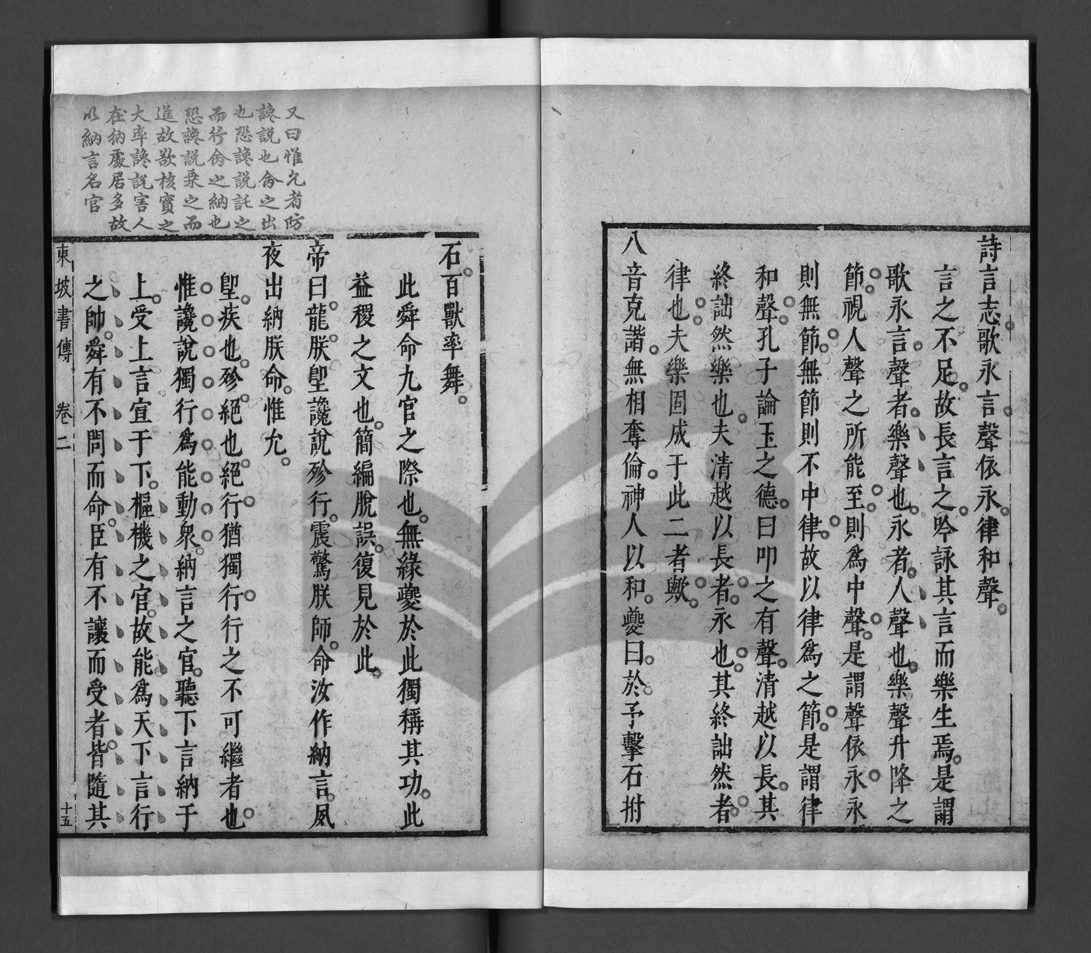 詩言志。歌永言。聲依永。律和聲。
言之不足。故長言之。吟詠其言而樂生焉。是謂
歌永言。聲者。樂聲也。永者。人聲也。樂聲升降之
節。視人聲之所能至。則爲中聲。是謂聲依永。永
則無節。無節則不中律。故以律爲之節。是謂律
和聲。孔子論玉之德。曰叩之有聲。清越以長。其
終詘然。樂也。夫清越以長者。永也。其終詘然者。
律也。夫樂固成于此二者歟。
八音克諧。無相奪倫。神人以和。夔曰。於予擊石拊
石。百獸率舞。
此舜命九官之際也。無緣夔於此獨稱其功。此
益稷之文也。簡編脫誤。復見於此。
帝曰。龍。朕堲讒說殄行。震驚朕師。命汝作納言。夙
夜出納朕命。惟允。
堲。疾也。殄。絕也。絕行。猶獨行。行之不可繼者也。
惟讒說獨行。爲能動衆。納言之官。聽下言納于
上。受上言宣于下。樞機之官。故能爲天下言行
之師。舜有不問而命。臣有不讓而受者。皆隨其
東坡書傳 卷二 十五
又曰惟允者防
讒説也命之出
也恐讒説託之
而行命之納也
恐讒説乗之而
進故欲核實之
大率讒説害人
在納處居多故
以納言名官